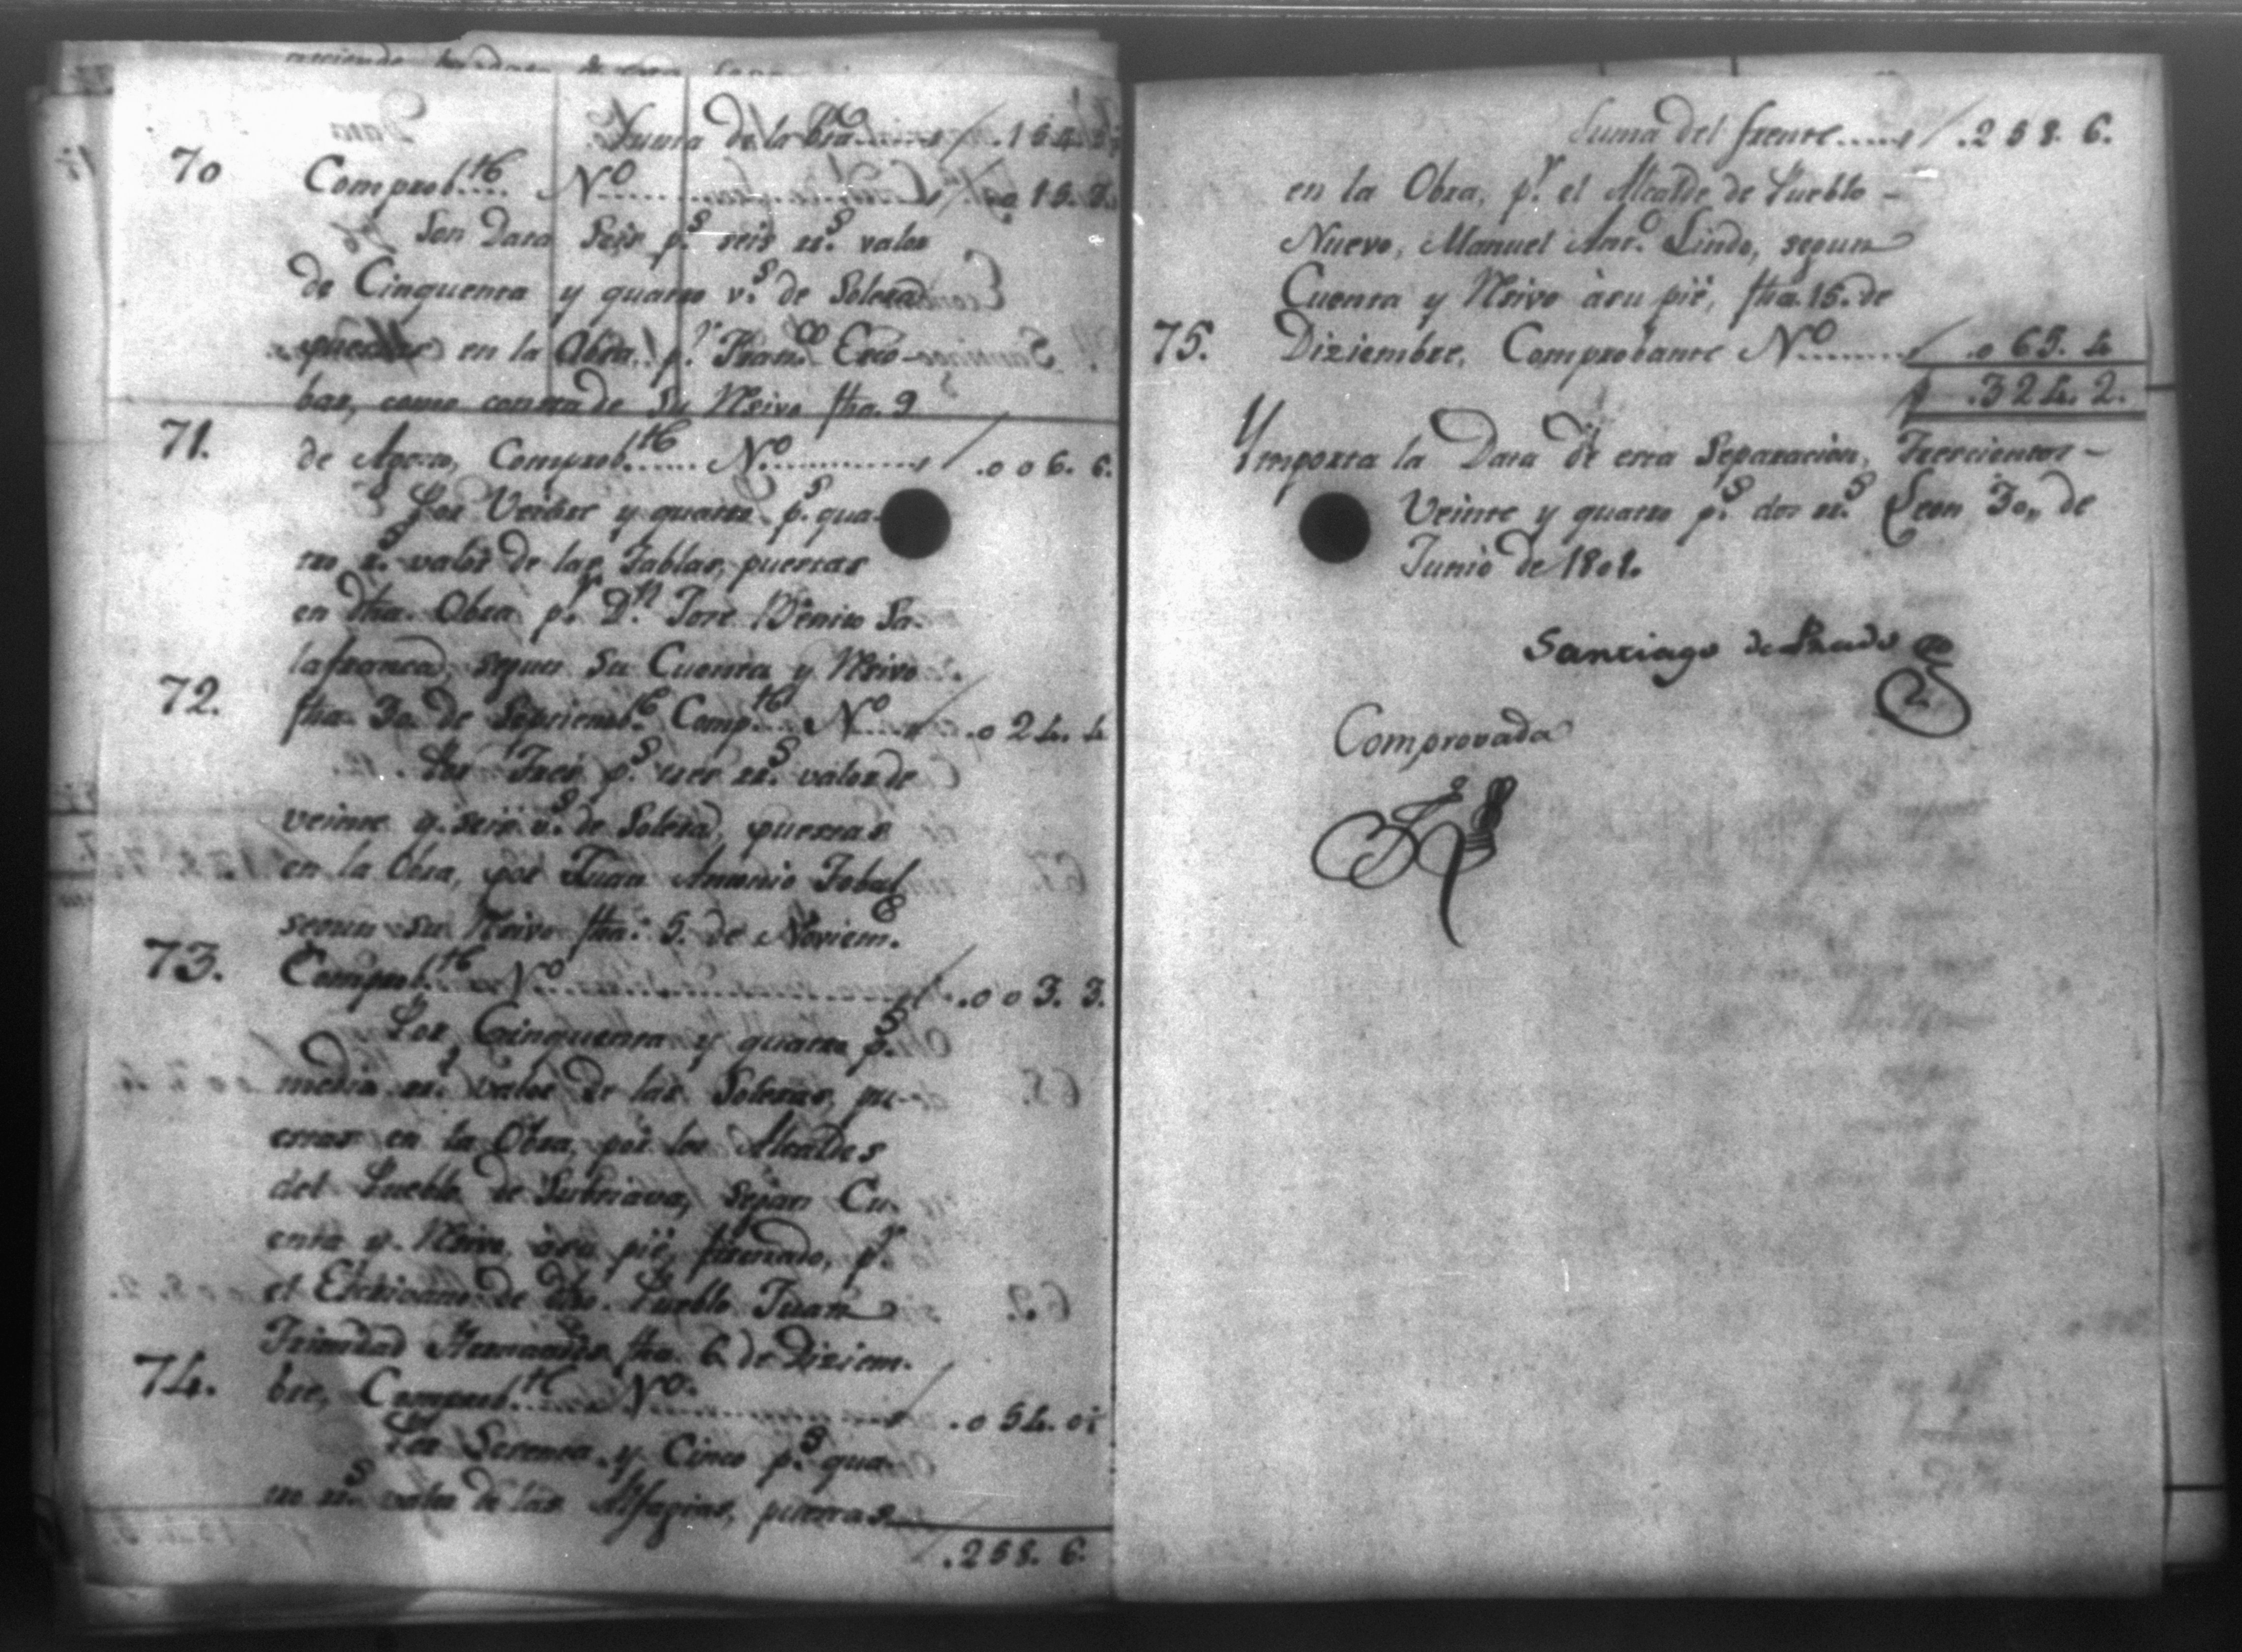 Suma de la bta....... / .154.
70 Comprob.te No ....... / .015.
Son Data Seis p.s seis rr.s valor
de Cinquenta y quatro v.s de Solera
puestas en la Obra, p.r Fran.co Esco-
bar, como consta de su Rsivo fha. 9
71. de Agosto, Comprob.te No....... / .006. 6.
Por Veinte y quatro p.s qua-
tro rr.s valor de las Tablas, puestas
en dha. Obra p.r D.n Jose Benito Sa-
lafranca, segun su Cuenta y Rsivo
72. fha. 30. de Septiemb.e Comp.te No..... / .024. 4
Por Tres p.s tres rr.s valor de
veinte y seis v.s de Solera, puestas
en la Obra, por Juan Antonio Tobal
segun su Rsivo fha. 5. de Noviem.e
73. Comprob.te No ....... / .003. 3.
Por Cinquenta y quatro p.s
medio rr.l valor de las Soleras, pu-
estas en la Obra, por los Alcaldes
del Pueblo de Subtiava, segun Cu-
enta y Rsivo, à su pie, firmado, p.r
el Escrivano de dho. Pueblo Juan
Trinidad Hernandes fha. 6. de Diziem-
74. bre, Comprob.te No. ....... / .054. 0½
Por Sesenta y Cinco p.s qua-
tro rr.s valor de las Alfagias, puestas
.258. 6.
Suma del frente..... / .258. 6.
en la Obra, p.r el Alcalde de Pueblo -
Nuevo, Manuel Ant.o Lindo, segun
Cuenta y Rsivo à su pie, fha. 15. de
75. Diziembre, Comprobante No....... / .065. 4
.324. 2.
Ymporta la Data de esta Separacion, Trescientos -
Veinte y quatro p.s dos rr.s Leon 30,, de
Junio de 1801.
Santiago de Prado
Comprovada